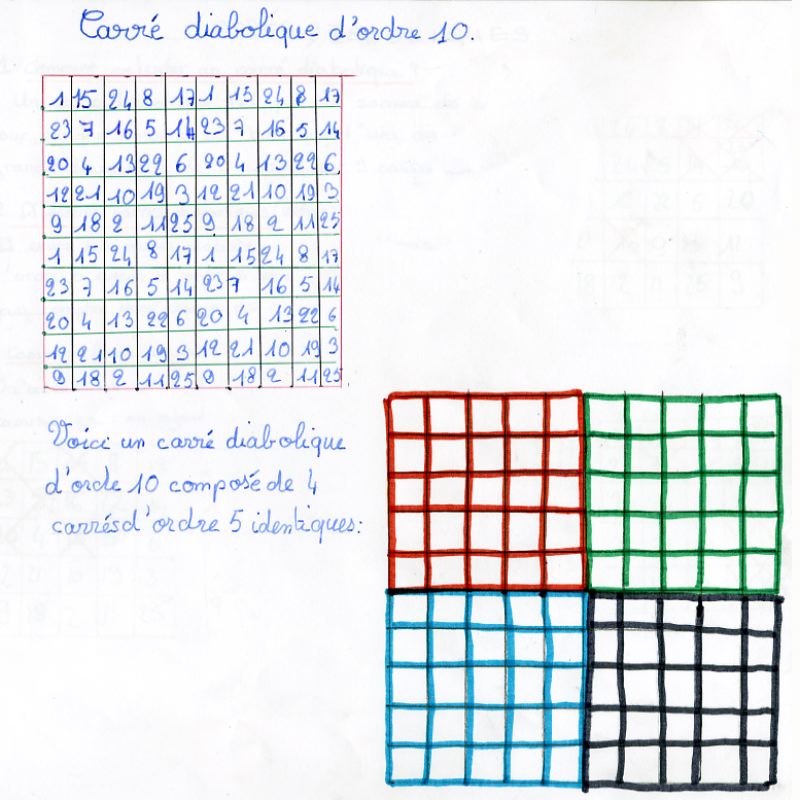 Carré diabolique d'ordre 10.
1 15 24 8 17 1 15 24 8 17
23 7 16 5 14 23 7 16 5 14
20 4 13 22 6 20 4 13 22 6
12 21 10 19 3 12 21 10 19 3
9 18 2 11 25 9 18 2 11 25
1 15 24 8 17 1 15 24 8 17
23 7 16 5 14 23 7 16 5 14
20 4 13 22 6 20 4 13 22 6
12 21 10 19 3 12 21 10 19 3
9 18 2 11 25 9 18 2 11 25
Voici un carré diabolique
d'orde 10 composé de 4
carrés d'ordre 5 identiques: